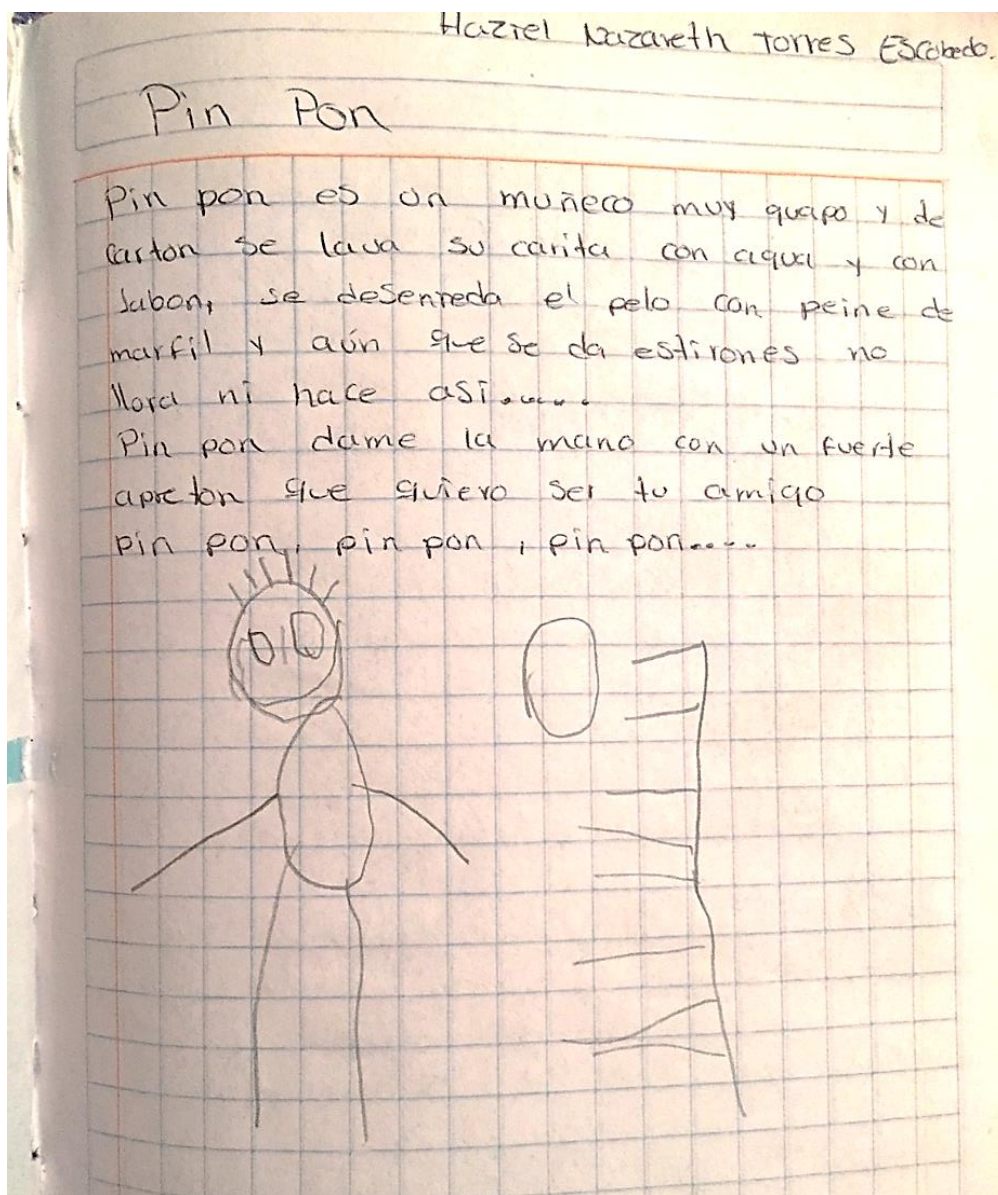 Haziel Nazareth Torres Escobedo.
Pin Pon
Pin pon es un muñeco muy guapo y de
carton se lava su carita con agua y con
Jabon, se desenreda el pelo con peine de
marfil y aún que se da estirones no
llora ni hace asi......
Pin pon dame la mano con un fuerte
apreton que quiero ser tu amigo
pin pon, pin pon, pin pon....